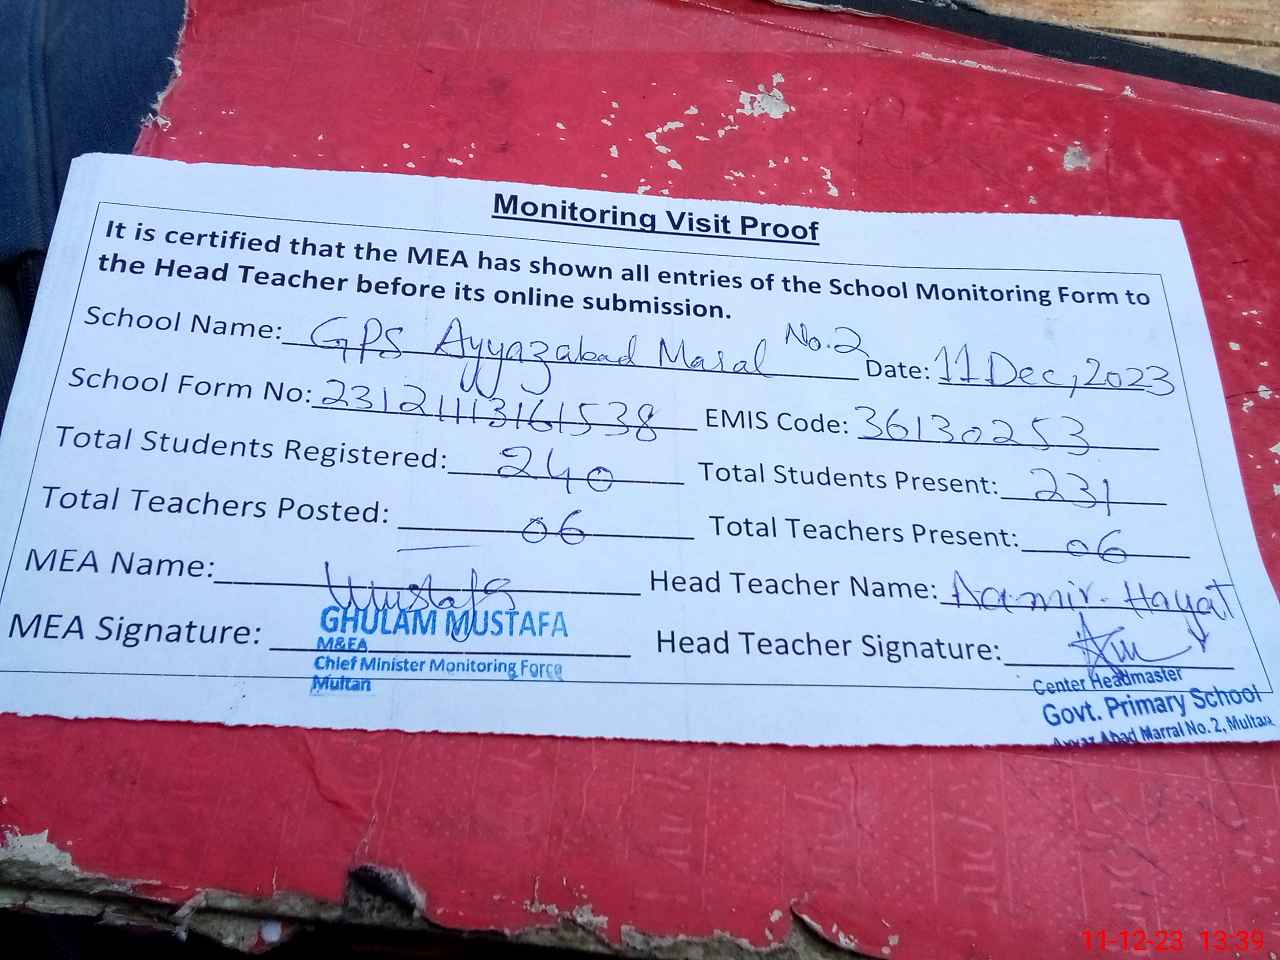 Monitoring Visit Proof
It is certified that the MEA has shown all entries of the School Monitoring Form to
the Head Teacher before its online submission.
School Name: GPS Ayyazabad Maral No.2 Date: 11 Dec, 2023
School Form No: 23121113161538 EMIS Code: 36130253
Total Students Registered: 240 Total Students Present: 231
Total Teachers Posted: 06 Total Teachers Present: 06
MEA Name: Mustafa Head Teacher Name: Aamir Hayat
MEA Signature: Head Teacher Signature:
GHULAM MUSTAFA
M&EA
Chief Minister Monitoring Force
Multan
Center Headmaster
Govt. Primary School
Ayyaz Abad Marral No. 2, Multan
11-12-23 13:39